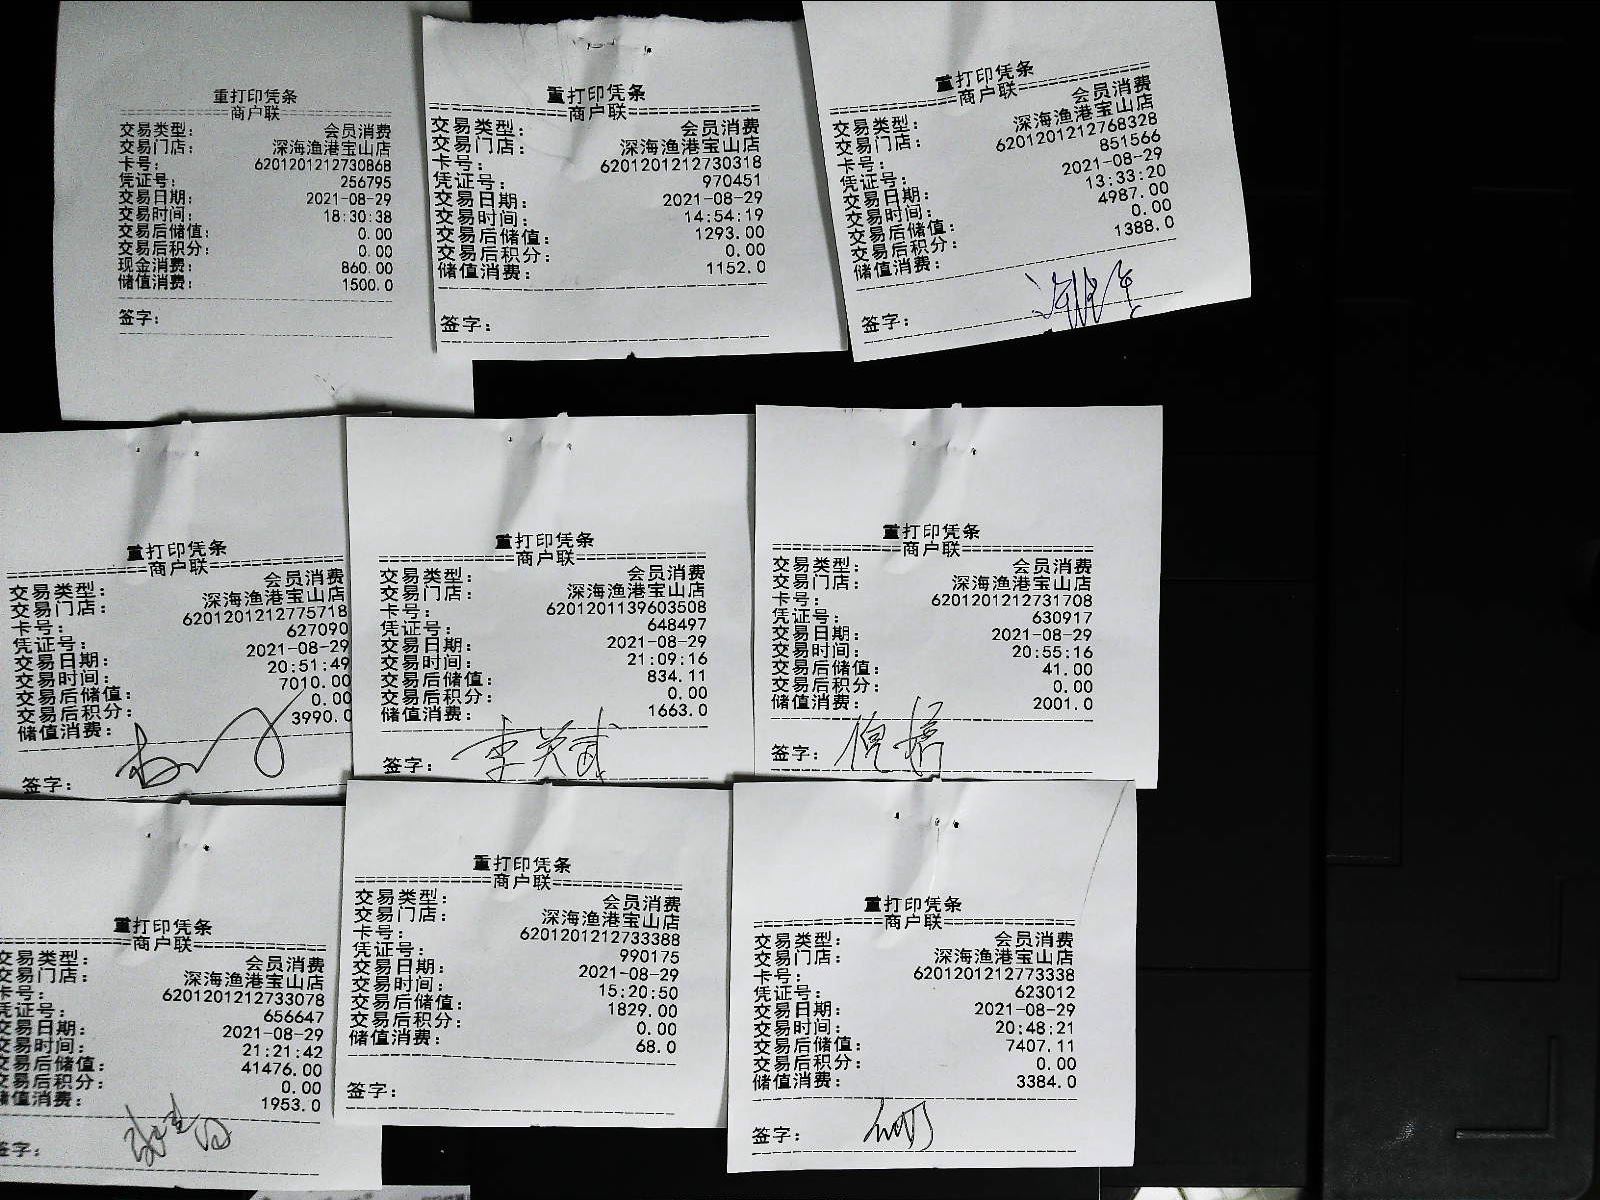 重打印凭条
==============商户联==============
交易类型: 会员消费
交易门店: 深海渔港宝山店
卡号: 6201201212730868
凭证号: 256795
交易日期: 2021-08-29
交易时间: 18:30:38
交易后储值: 0.00
交易后积分: 0.00
现金消费: 860.00
储值消费: 1500.0
签字:
重打印凭条
==============商户联==============
交易类型: 会员消费
交易门店: 深海渔港宝山店
卡号: 6201201212730318
凭证号: 970451
交易日期: 2021-08-29
交易时间: 14:54:19
交易后储值: 1293.00
交易后积分: 0.00
储值消费: 1152.0
签字:
重打印凭条
==============商户联==============
交易类型: 会员消费
交易门店: 深海渔港宝山店
卡号: 6201201212768328
凭证号: 851566
交易日期: 2021-08-29
交易时间: 13:33:20
交易后储值: 4987.00
交易后积分: 0.00
储值消费: 1388.0
签字:
重打印凭条
==============商户联==============
交易类型: 会员消费
交易门店: 深海渔港宝山店
卡号: 6201201212775718
凭证号: 627090
交易日期: 2021-08-29
交易时间: 20:51:49
交易后储值: 7010.00
交易后积分: 0.00
储值消费: 3990.0
签字:
重打印凭条
==============商户联==============
交易类型: 会员消费
交易门店: 深海渔港宝山店
卡号: 6201201139603508
凭证号: 648497
交易日期: 2021-08-29
交易时间: 21:09:16
交易后储值: 834.11
交易后积分: 0.00
储值消费: 1663.0
签字:
重打印凭条
==============商户联==============
交易类型: 会员消费
交易门店: 深海渔港宝山店
卡号: 6201201212731708
凭证号: 630917
交易日期: 2021-08-29
交易时间: 20:55:16
交易后储值: 41.00
交易后积分: 0.00
储值消费: 2001.0
签字:
重打印凭条
==============商户联==============
交易类型: 会员消费
交易门店: 深海渔港宝山店
卡号: 6201201212733078
凭证号: 656647
交易日期: 2021-08-29
交易时间: 21:21:42
交易后储值: 41476.00
交易后积分: 0.00
储值消费: 1953.0
签字:
重打印凭条
==============商户联==============
交易类型: 会员消费
交易门店: 深海渔港宝山店
卡号: 6201201212733388
凭证号: 990175
交易日期: 2021-08-29
交易时间: 15:20:50
交易后储值: 1829.00
交易后积分: 0.00
储值消费: 68.0
签字:
重打印凭条
==============商户联==============
交易类型: 会员消费
交易门店: 深海渔港宝山店
卡号: 6201201212773338
凭证号: 623012
交易日期: 2021-08-29
交易时间: 20:48:21
交易后储值: 7407.11
交易后积分: 0.00
储值消费: 3384.0
签字: